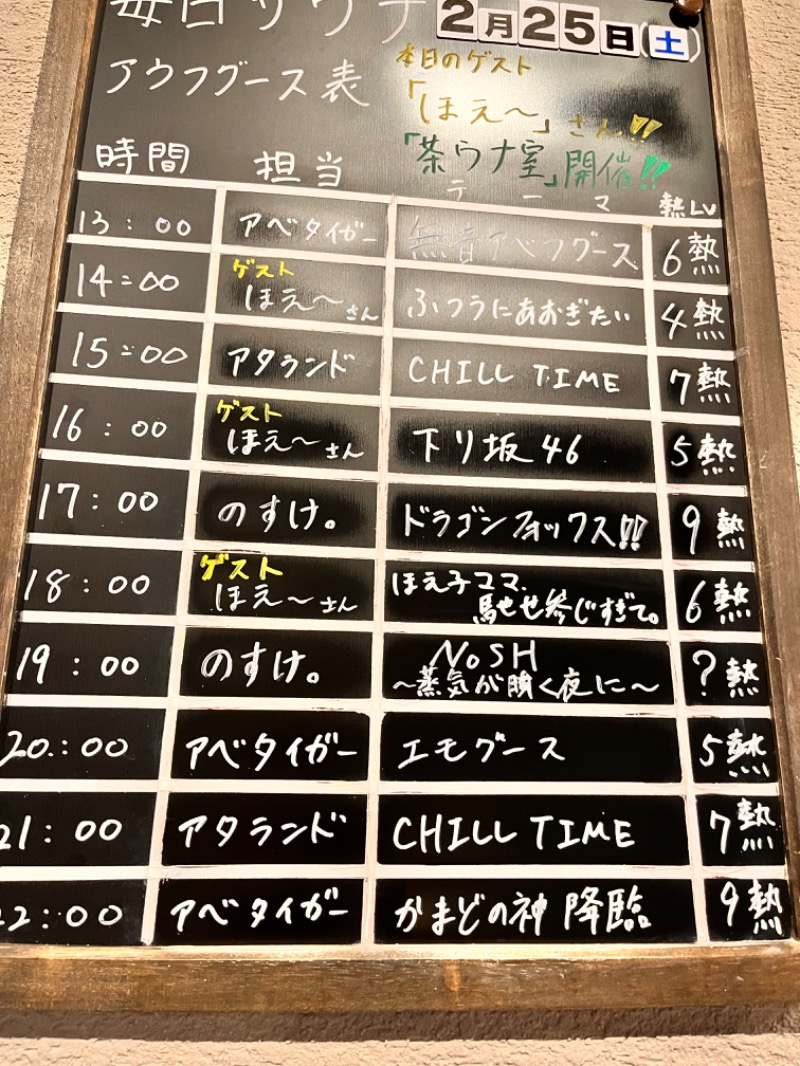 毎日サウナ 2月25日(土)
アウフグース表
本日のゲスト
「ほえ〜」さん!!
「茶ウナ室」開催!!
時間 担当 テーマ 熱LV
13:00 アベタイガー 無音アベフグース 6熱
14:00 ゲスト ほえ〜さん ふつうにあおぎたい 4熱
15:00 アタランド CHILL TIME 7熱
16:00 ゲスト ほえ〜さん 下り坂46 5熱
17:00 のすけ。 ドラゴンフォックス!! 9熱
18:00 ゲスト ほえ〜さん ほえ子ママ、 6熱
馳せ参じすぎて。
19:00 のすけ。 NoSH ?熱
〜蒸気が瞬く夜に〜
20:00 アベタイガー エモグース 5熱
21:00 アタランド CHILL TIME 7熱
22:00 アベタイガー かまどの神 降臨 9熱